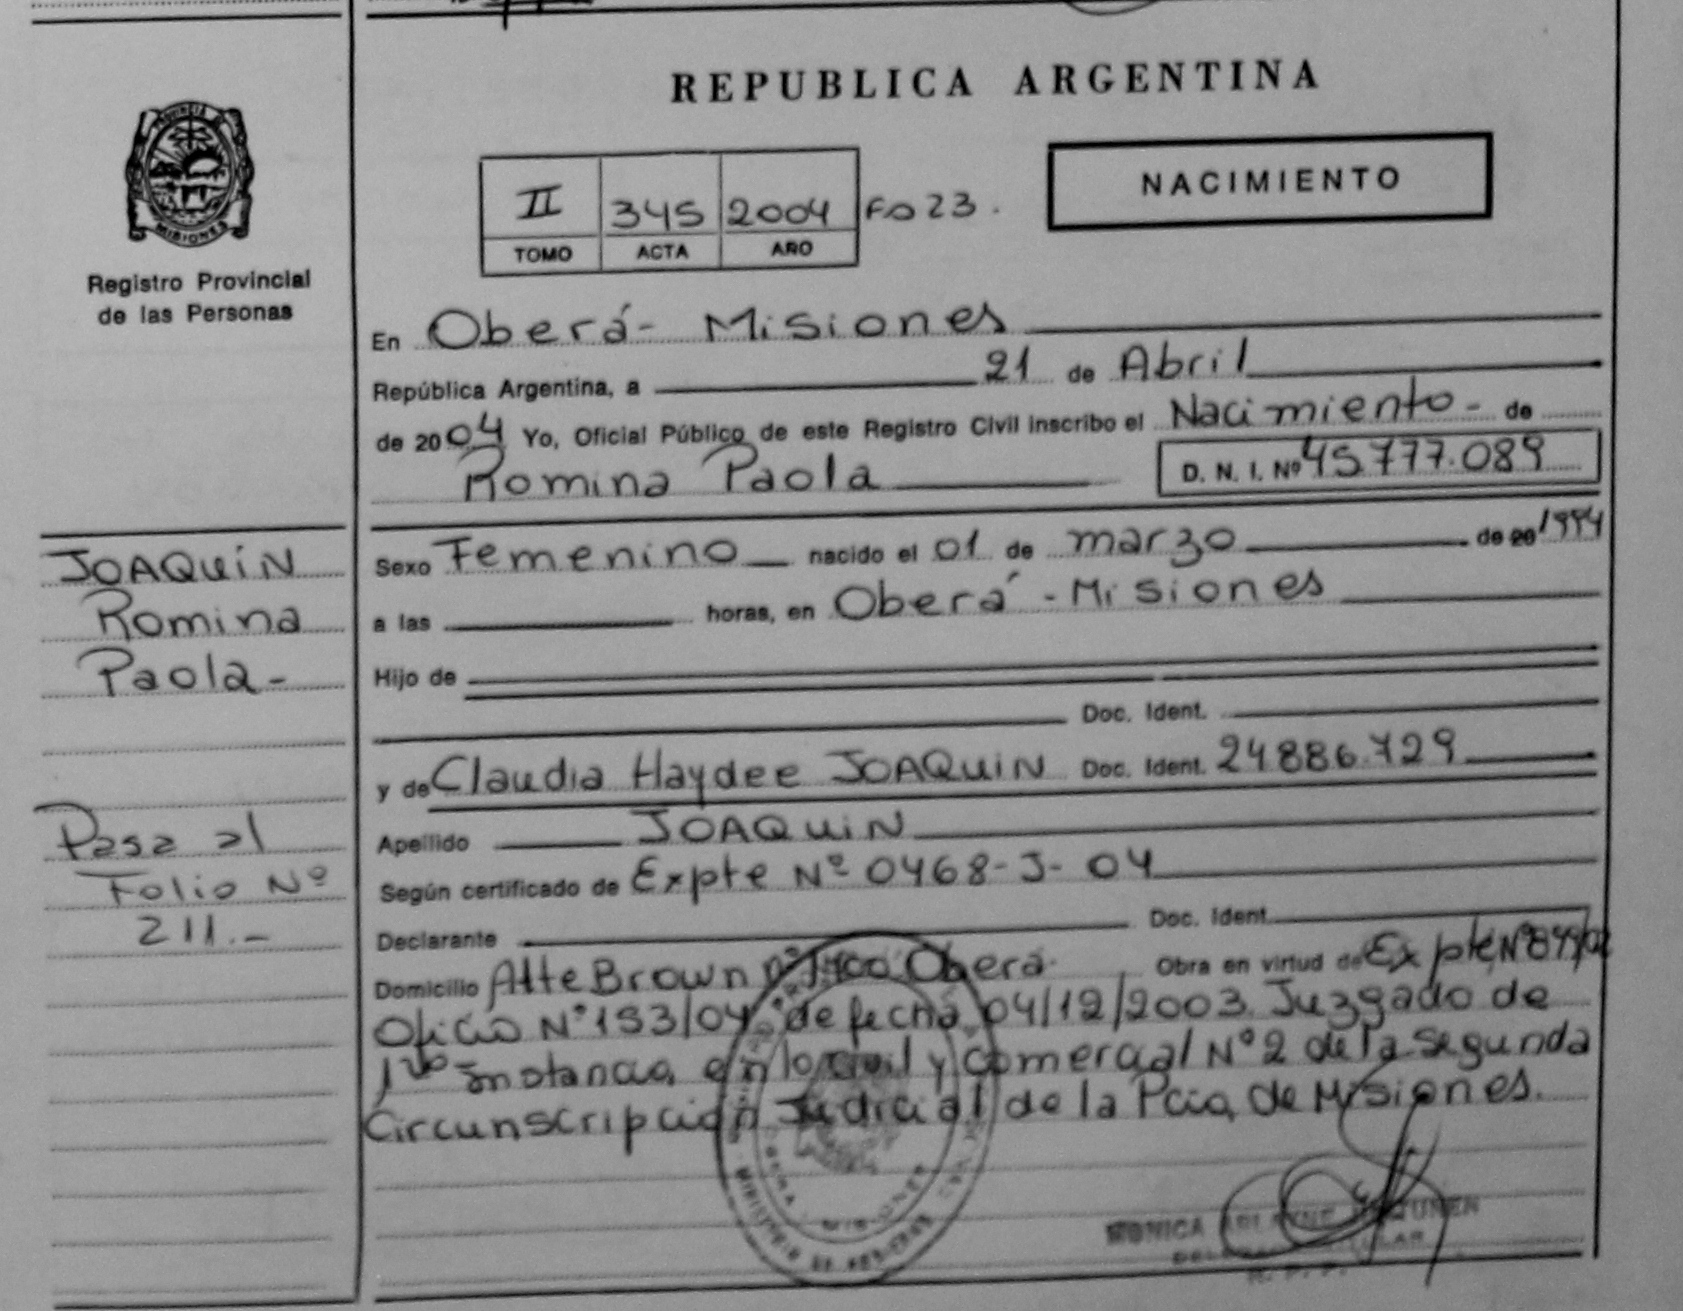 REPUBLICA ARGENTINA
PROVINCIA DE
MISIONES
Registro Provincial
de las Personas
NACIMIENTO
II 345 2004 Fo 23.
TOMO ACTA AÑO
En Oberá - Misiones
República Argentina, a 21 de Abril
de 2004 Yo, Oficial Público de este Registro Civil inscribo el Nacimiento - de
Romina Paola D. N. I. Nº 45.777.089
JOAQUÍN
Romina
Paola -
Sexo Femenino nacido el 01 de marzo de 20 1994
a las horas, en Oberá - Misiones
Hijo de
Doc. Ident.
y de Claudia Haydee JOAQUIN Doc. Ident. 24886.729
Pasa al
Folio Nº
211.-
Apellido JOAQUIN
Según certificado de Expte Nº 0468-J-04
Declarante Doc. Ident.
Domicilio Alte Brown nº Oberá. Obra en virtud de Expte Nº
Oficio Nº 153/04 de fecha 04/12/2003. Juzgado de
1ra Instancia en lo civil y Comercial Nº 2 de la Segunda
Circunscripción Judicial de la Pcia, de Misiones.
MONICA